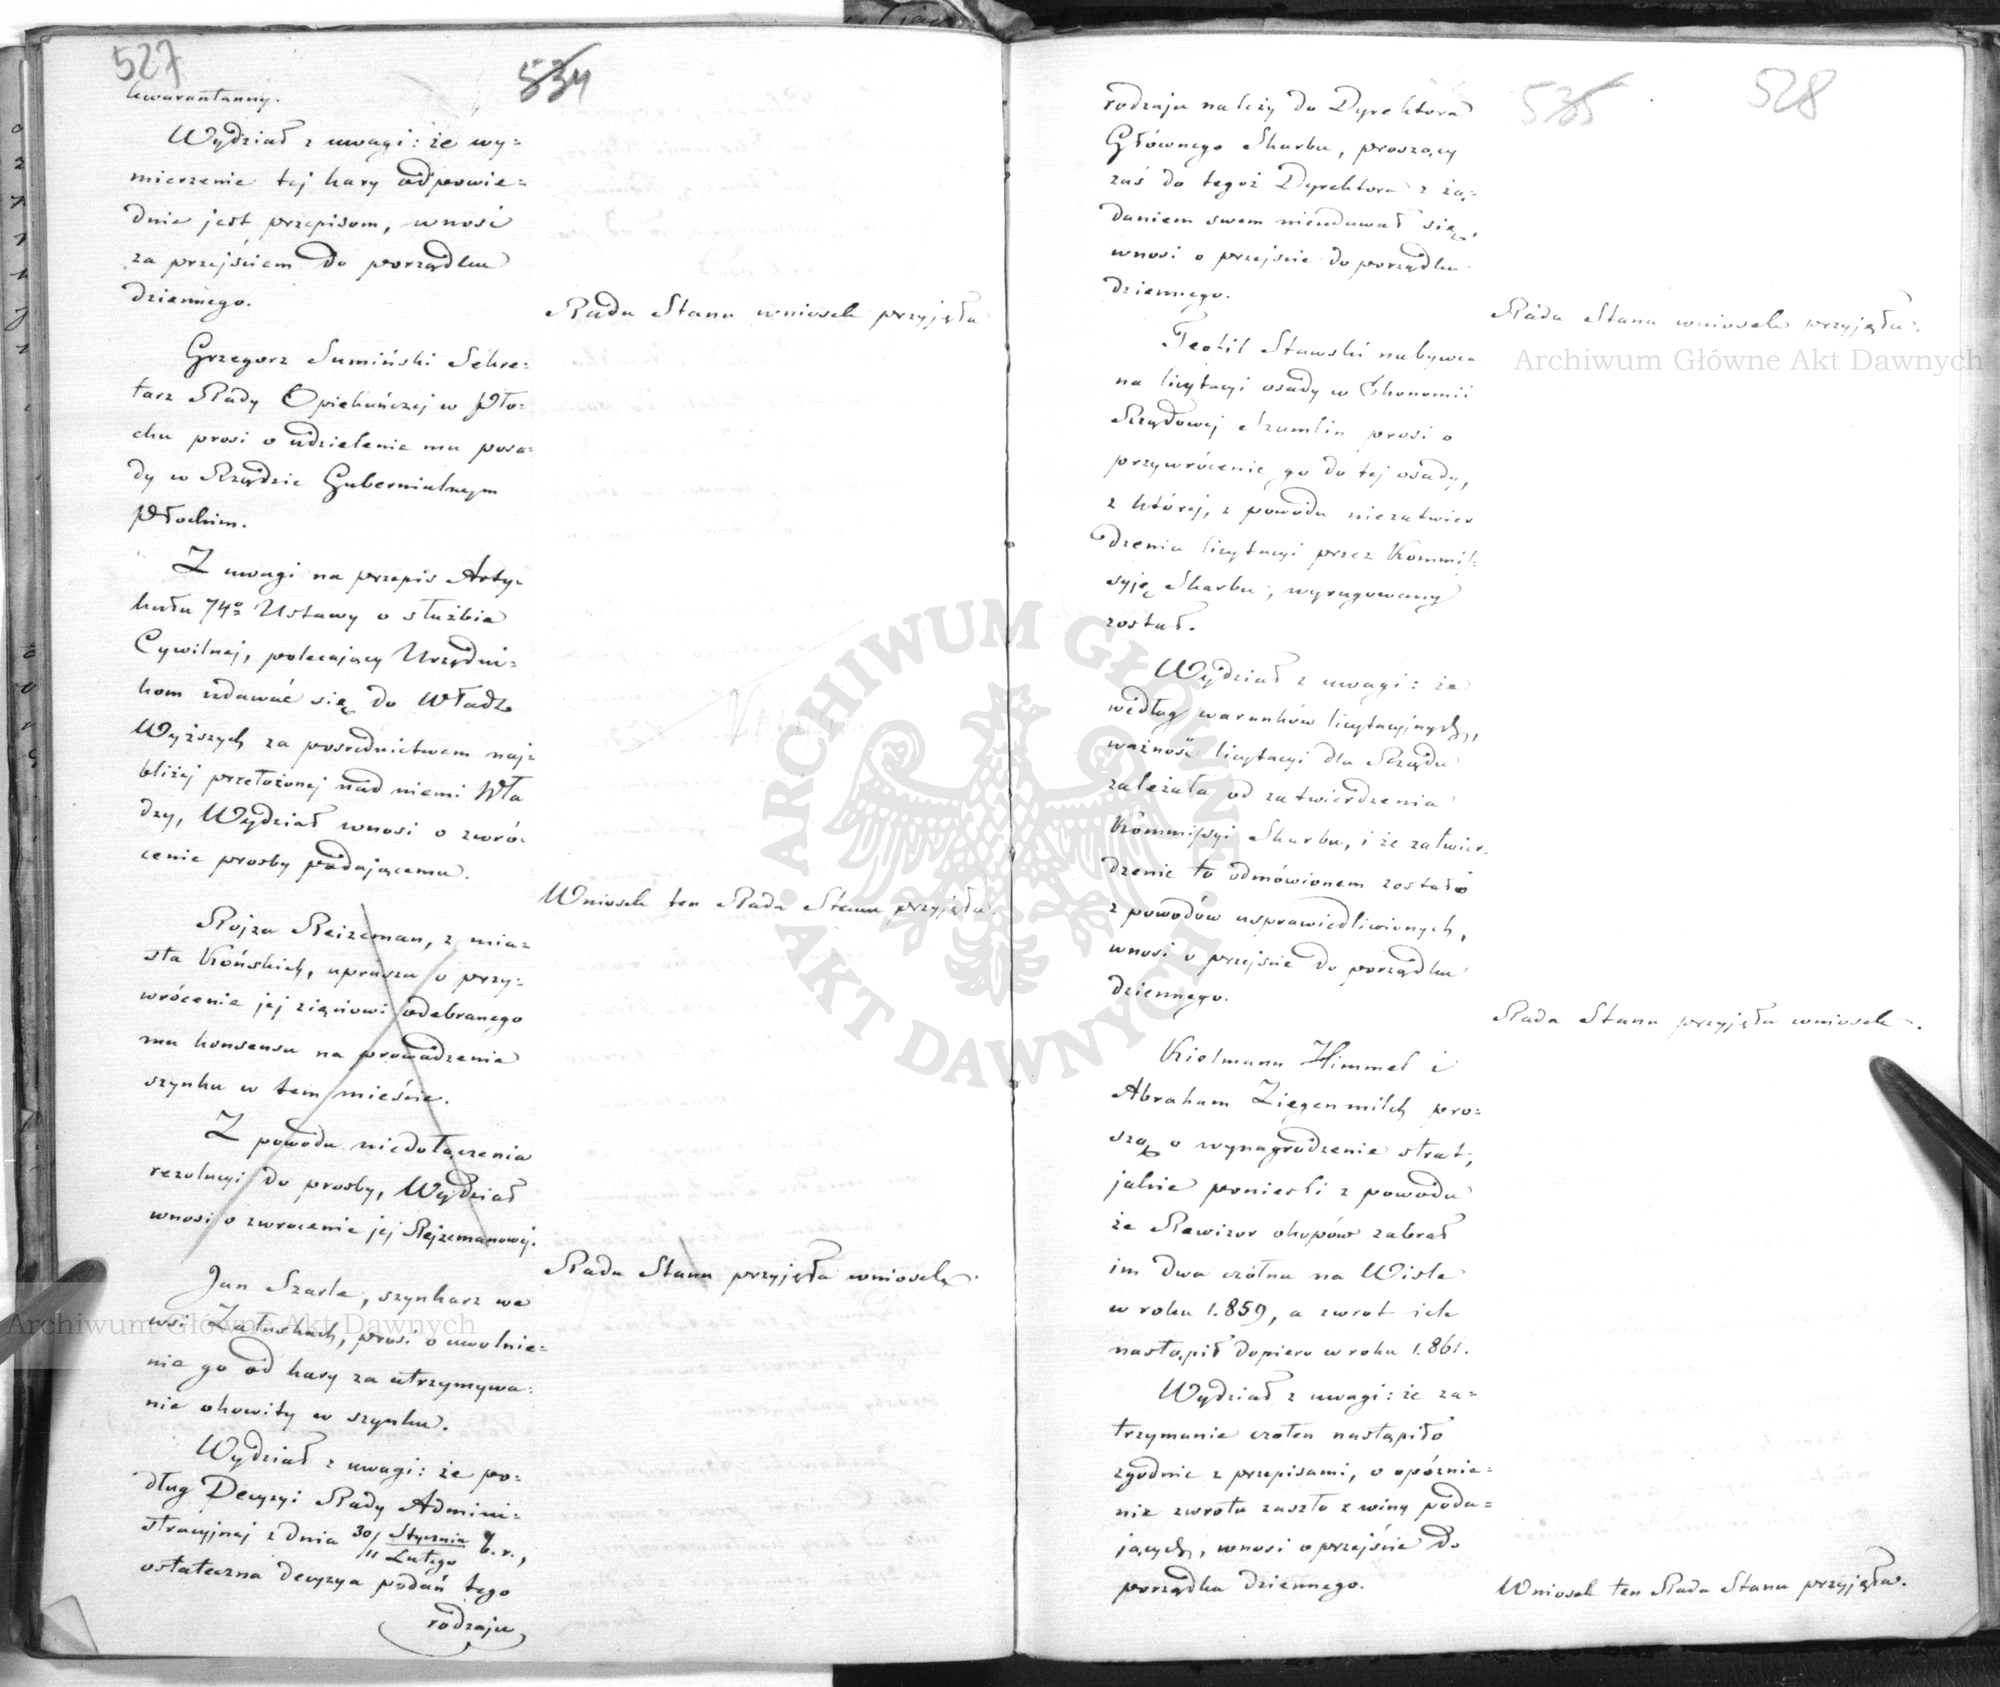 527
534
kwarantanny.
Wydział z uwagi: że wy=
mierzenie tej kary odpowie=
dnie jest przepisom, wnosi
za przejściem do porządku
dziennego.
Rada Stanu wniosek przyjęła
Grzegorz Sumiński Sekre=
tarz Rady Opiekuńczej w Pło=
cku prosi o udzielenie mu posa=
dy w Rządzie Gubernialnym
Płockim.
Z uwagi na przepis Arty=
kułu 74º Ustawy o służbie
Cywilnej, polecający Urzędni=
kom udawać się do Władz
Wyższych za pośrednictwem naj=
bliżej przełożonej nad niemi Wła
dzy, Wydział wnosi o zwró=
cenie prośby podającemu.
Wniosek ten Rada Stanu przyjęła.
Rojza Reizeman, z mia=
sta Końskich, uprasza o przy=
wrócenie jej zięciowi odebranego
mu konsensu na prowadzenie
szynku w tem mieście.
Z powodu niedołączenia
rezolucyi do prośby, Wydział
wnosi o zwrócenie jej Rejzemanowej.
Rada Stanu przyjęła wniosek.
Jan Szarle, szynkarz we
wsi Załuskach, prosi o uwolnie=
nie go od kary za utrzymywa=
nie okowity w szynku.
Wydział z uwagi: że po=
dług Decyzyi Rady Admini=
stracyjnej z dnia 30/11 Stycznia/Lutego b.r.,
ostateczna decyzya podań tego
rodzaju
535
528
rodzaju należy do Dyrektora
Głównego Skarbu, proszący
zaś do tegoż Dyrektora z żą=
daniem swem nieudawał się,
wnosi o przejście do porządku
dziennego.
Rada Stanu wniosek przyjęła.
Teofil Stawski nabywca
na licytacyi osady w Ekonomii
Rządowej Szumlin prosi o
przywrócenie go do tej osady,
z której, z powodu niezatwier
dzenia licytacyi przez Kommis=
syję Skarbu, wyrugowany
został.
Wydział z uwagi: że
według warunków licytacyjnych,
ważność licytacyi dla Rządu
zależała od zatwierdzenia
Kommissyi Skarbu, i że zatwier=
dzenie to odmówionem zostało
z powodów usprawiedliwionych,
wnosi o przejście do porządku
dziennego.
Rada Stanu przyjęła wniosek.
Kielmann Himmel i
Abraham Ziegenmilch pro=
szą o wynagrodzenie strat,
jakie ponieśli z powodu
że Rewizor okopów zabrał
im dwa czółna na Wiśle
w roku 1.859, a zwrot ich
nastąpił dopiero w roku 1.861.
Wydział z uwagi: że za=
trzymanie czółen nastąpiło
zgodnie z przepisami, o opóźnie=
nie zwrotu zaszło z winy poda=
jących, wnosi o przejście do
porządku dziennego.
Wniosek ten Rada Stanu przyjęła.
Archiwum Główne Akt Dawnych
Archiwum Główne Akt Dawnych
ARCHIWUM GŁÓWNE AKT DAWNYCH